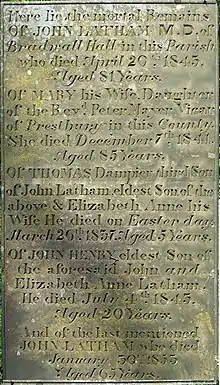 Here lie the mortal Remains
Of JOHN LATHAM M.D. of
Bradwall Hall in this Parish
who died April 20th 1843.
Aged 81 Years.
Of MARY his Wife Daughter
of the Revd. Peter Mayer Vicar
of Prestbury in this County
She died December
Aged 85 Years.
Of THOMAS Dampier third Son
of John Latham eldest Son of the
above & Elizabeth Anne his
Wife He died on Easter day
March 26th 1837. Aged 5 Years.
Of JOHN HENRY, eldest Son of
the aforesaid John and
Elizabeth Anne Latham.
He died July 4th 1843.
Aged 20 Years.
And of the last mentioned
JOHN LATHAM who died
January 30th 1853
Aged 65 Years.